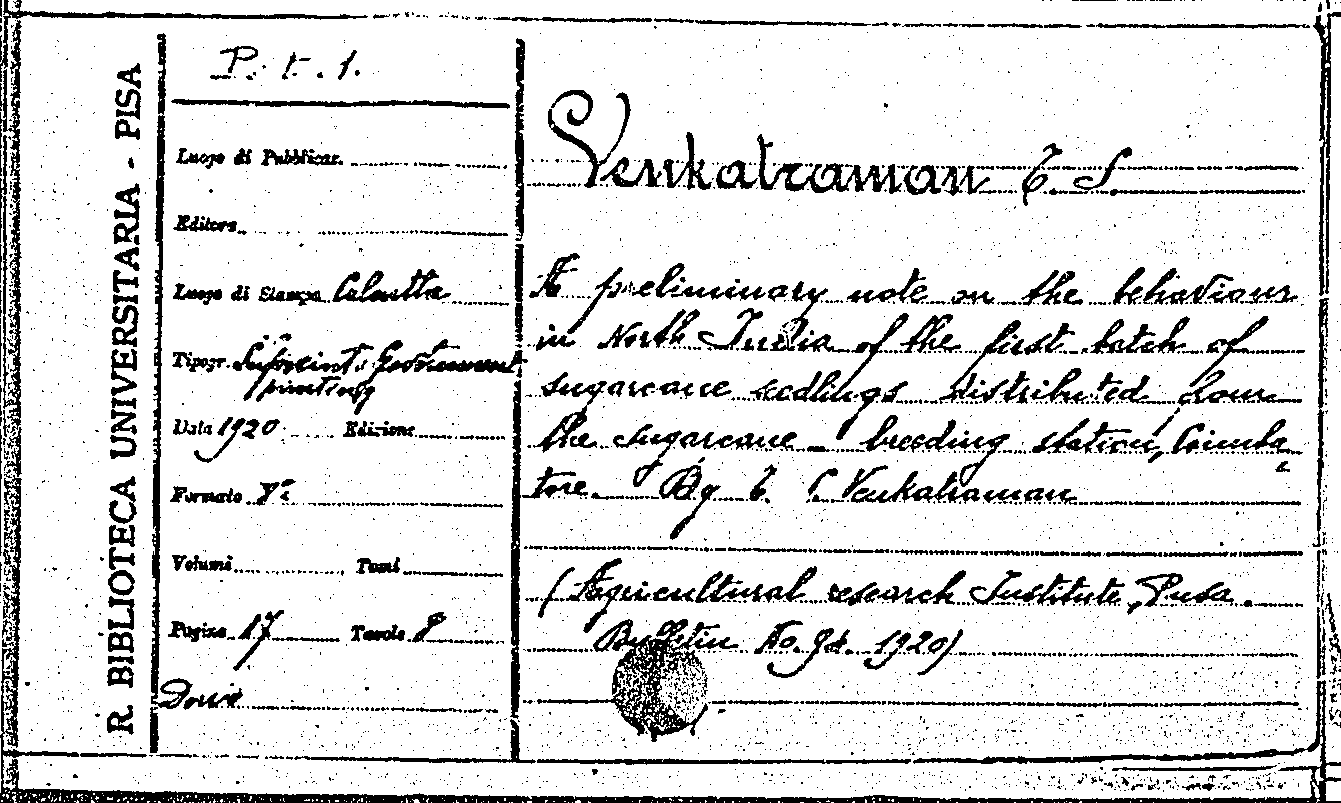 R. BIBLIOTECA UNIVERSITARIA - PISA
P. t. 1.
Luogo di Pubblicaz.
Editore
Luogo di Stampa Calcutta
Tipogr. Government
printing
Data 1920 Edizione
Formato 8°
Volumi Tomi
Pagine 17 Tavole 8
Dono
Venkatraman T. S.
A preliminary note on the behaviour
in North India of the first batch of
sugarcane seedlings distributed from
the sugarcane - breeding station, Coimba
tore. By T. S. Venkatraman
(Agricultural research Institute, Pusa.
Bulletin No. 94. 1920)